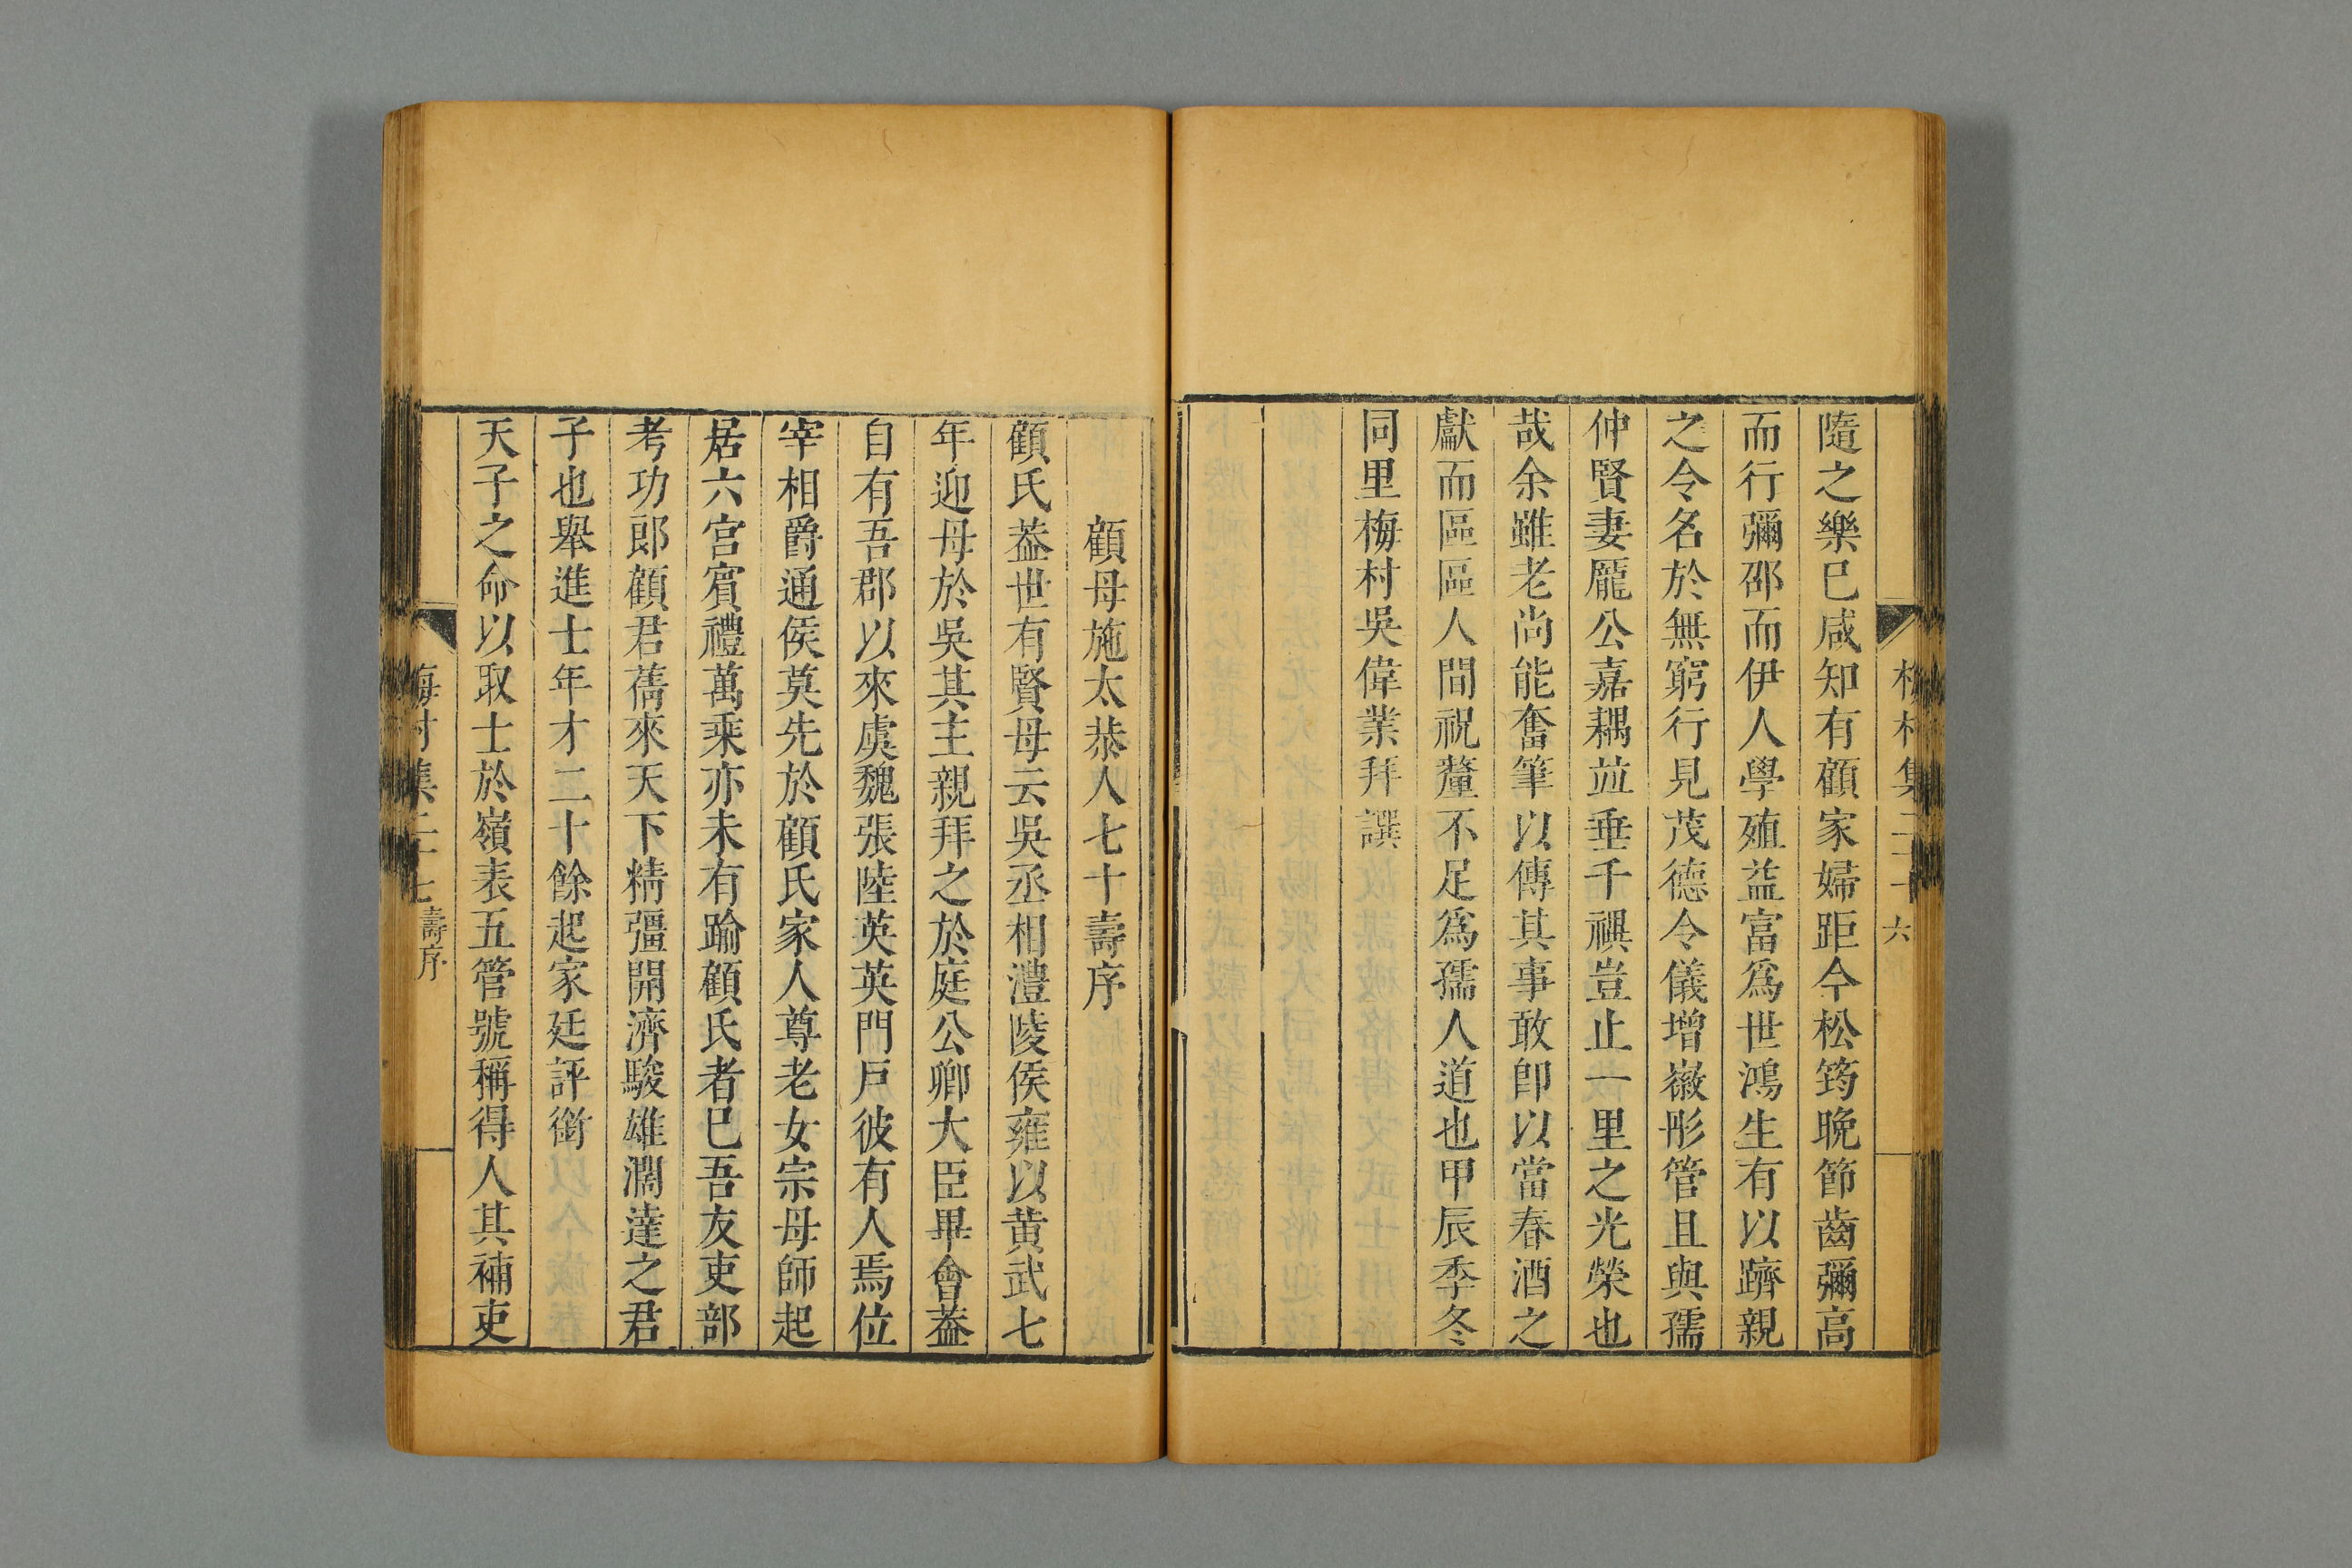 隨之樂已咸知有顧家婦距今松筠晚節齒彌高
而行彌邵而伊人學殖益富爲世鴻生有以躋親
之令名於無窮行見茂德令儀增徽彤管且與孺
仲賢妻龐公嘉耦並垂千禩豈止一里之光榮也
哉余雖老尚能奮筆以傳其事敢卽以當春酒之
獻而區區人間祝釐不足爲孺人道也甲辰季冬
同里梅村吳偉業拜譔
顧母施太恭人七十壽序
顧氏葢世有賢母云吳丞相澧陵侯雍以黃武七
年迎母於吳其主親拜之於庭公卿大臣畢會葢
自有吾郡以來虞魏張陸英英門戶彼有人焉位
宰相爵通侯莫先於顧氏家人尊老女宗母師起
居六宮賓禮萬乘亦未有踰顧氏者已吾友吏部
考功郎顧君蒨來天下精彊開濟駿雄濶達之君
子也舉進士年才二十餘起家廷評銜
天子之命以取士於嶺表五管號稱得人其補吏
梅村集二十七 壽序